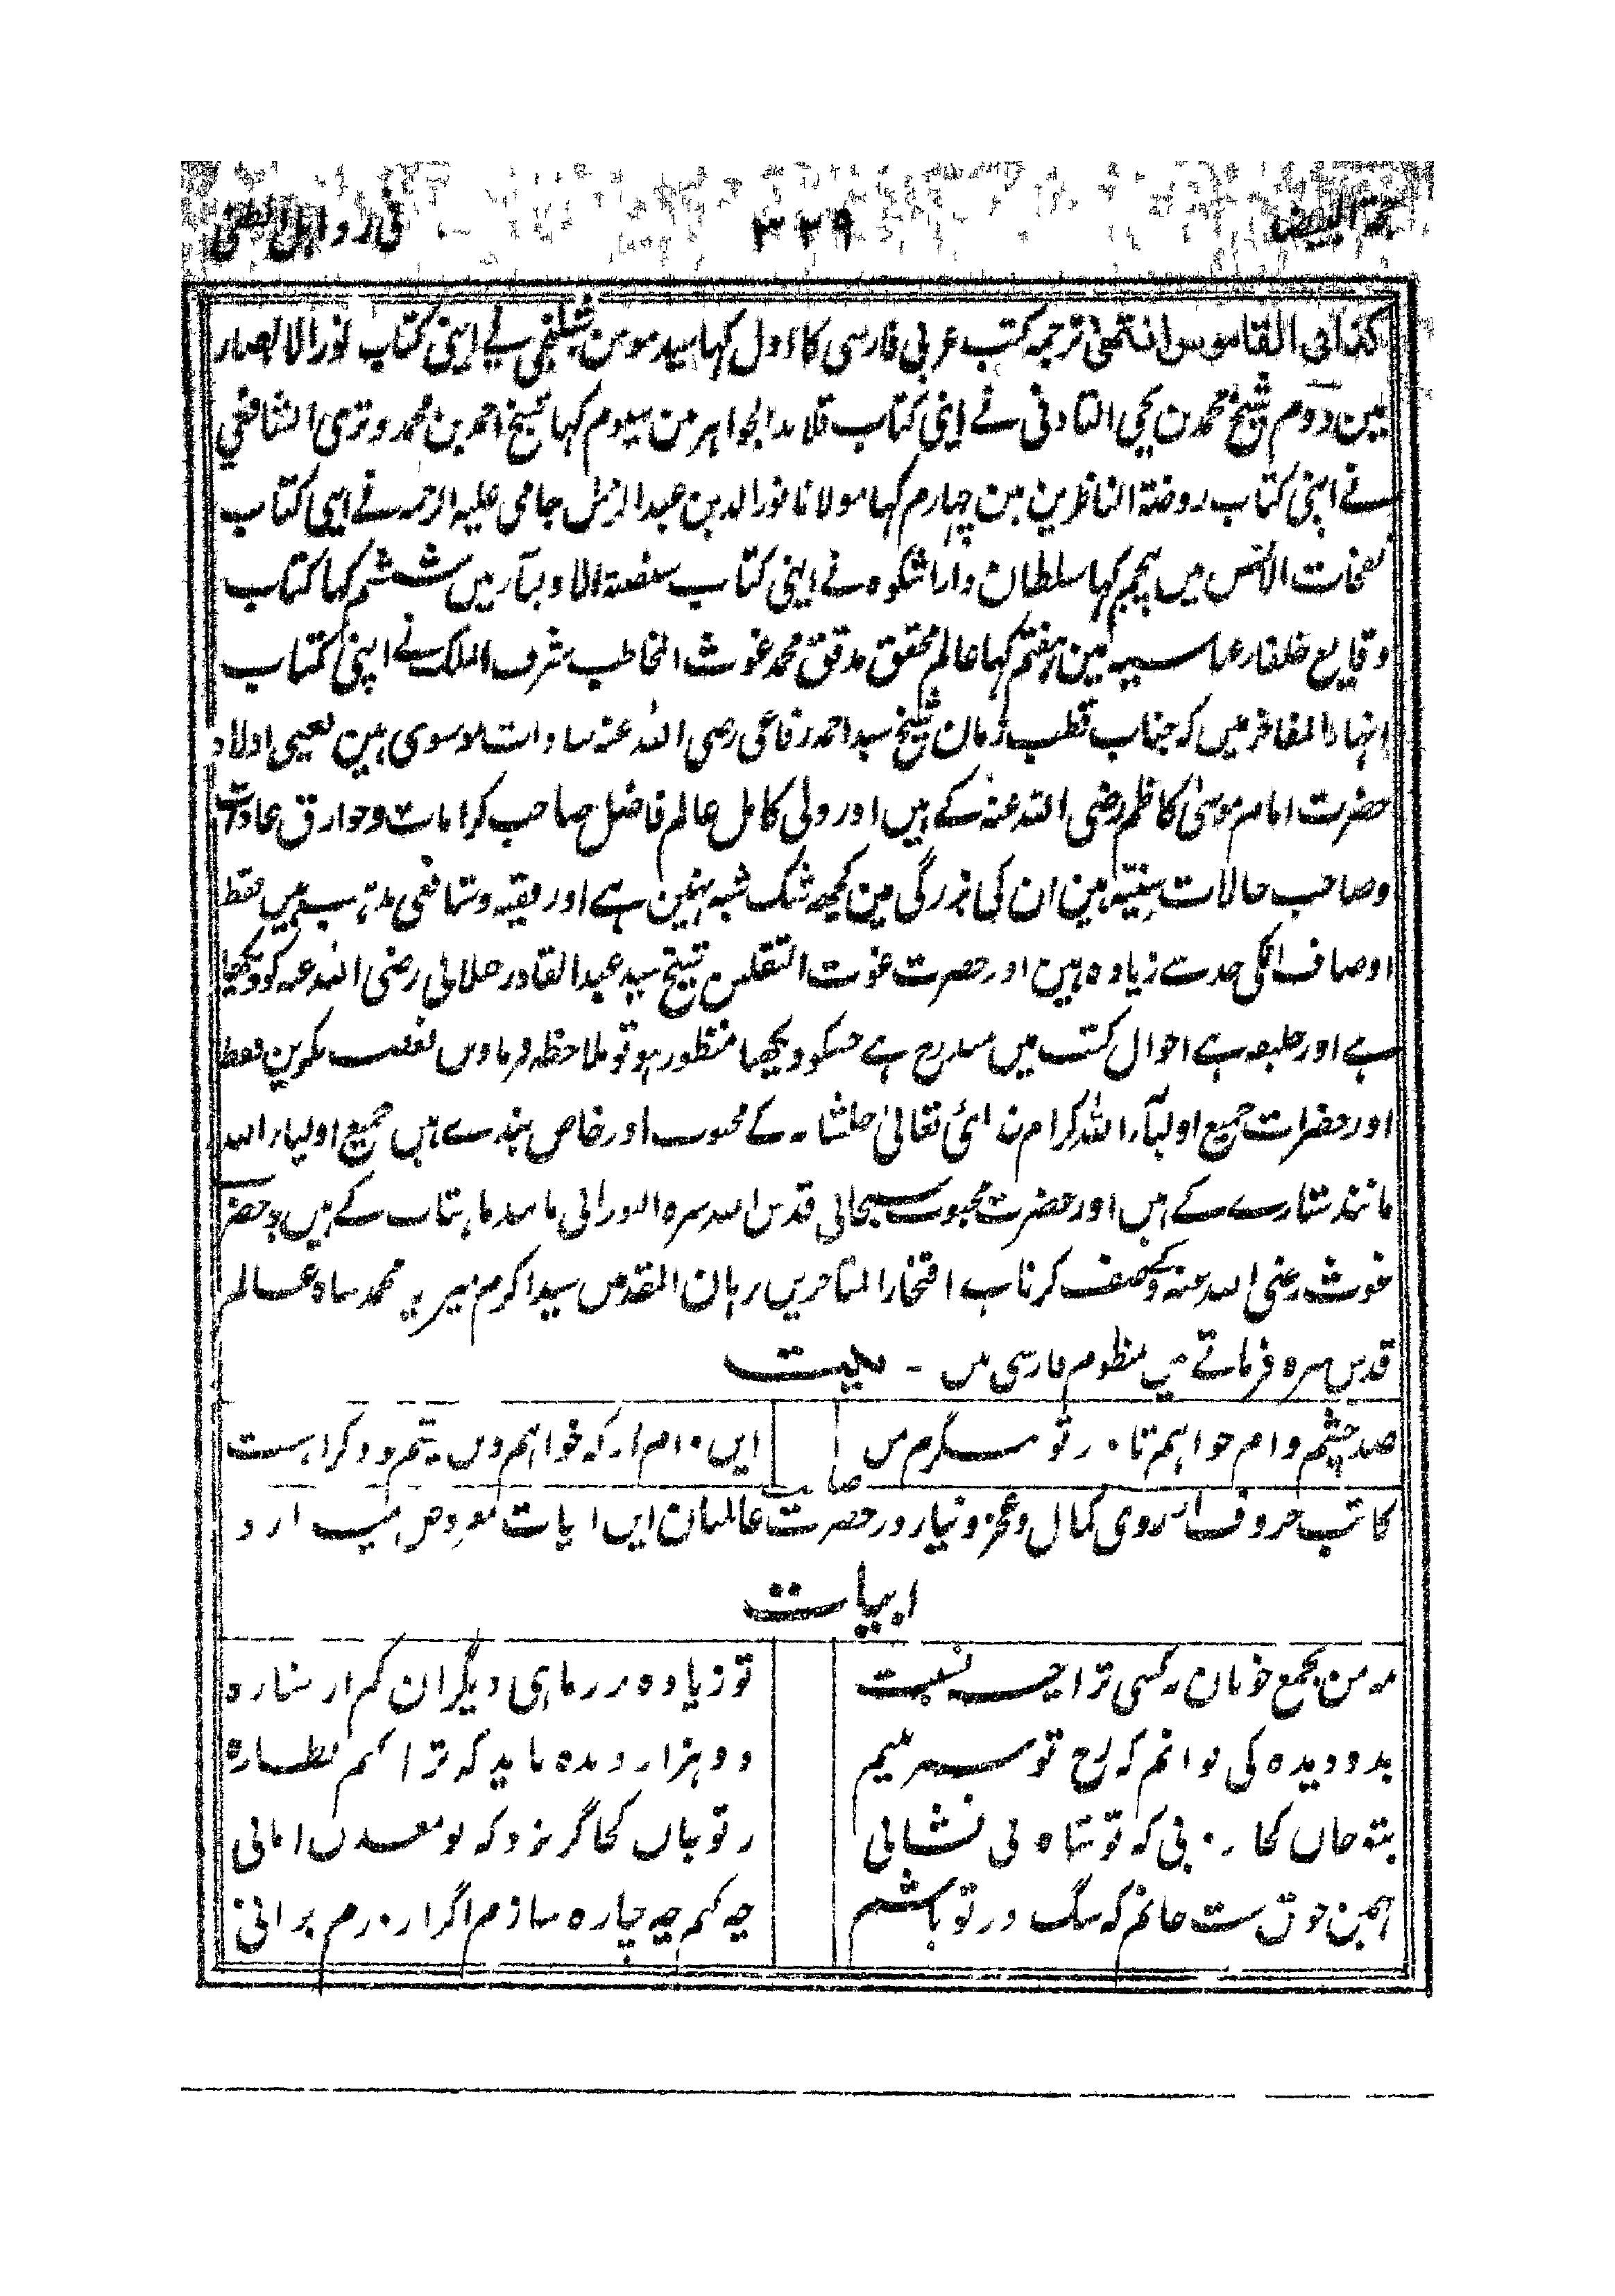 ۳۲۹
کذا فی القاموس انتہیٰ ترجمہ کتب عربی فارسی کا اول کہا سید مومن شبلنجی نے اپنی کتاب نور الابصار
مین دوم شیخ محمد بن یحیی التادفی نے اپنی کتاب قلائد الجواہر من سیوم کہا شیخ احمد بن محمد وتری الشافعی
نے اپنی کتاب روضة الناظرین مین چہارم کہا مولانا نور الدین عبد الرحمٰن جامی علیہ الرحمہ نے اپنی کتاب
نفحات الانس میں پنجم کہا سلطان دارا شکوہ نے اپنی کتاب سفینۃ الاولیآء میں ششم کہا کتاب
وقایع خلفاء عباسیہ مین ہفتم کہا عالم محقق مدقق محمد غوث المخاطب شرف الملک نے اپنی کتاب
انہار المفاخر میں کہ جناب قطب زمان شیخ سید احمد رفاعی رضی اللہ عنہ سادات موسوی ہین یعنی اولاد
حضرت امام موسیٰ کاظم رضی اللہ عنہ کے ہیں اور ولی کامل عالم فاضل صاحب کرامات وخوارق عادات
وصاحب حالات سنیّہ ہین ان کی بزرگی مین کچھ شک شبہ نہین ہے اور فقیہ وشافعی مذہب ہیں فقط
اوصاف انکی حد سے زیادہ ہین اور حضرت غوث الثقلین شیخ سید عبد القادر جیلانی رضی اللہ عنہ کو دیکھا
ہے اور خلیفہ ہے احوال کتب میں مندرج ہے جسکو دیکھنا منظور ہو تو ملاحظہ فرماویں تعصب نکرین فقط
اور حضرات جمیع اولیآء اللہ کرام خدائی تعالیٰ جلشانہ کے محبوب اور خاص بندے ہیں جمیع اولیاء اللہ
مانند ستارے کے ہیں اور حضرت محبوب سبحانی قدس اللہ سرہ النورانی مانند ماہتاب کے ہیں جو حضرت
غوث رضی اللہ عنہ افتخار المتاخرین سید اکرم محمد شاہ عالم
قدس سرہ فرماتے ہیں منظوم فارسی میں ۔ بیت
صد چشم وام خواہم تا در تو بنگرم من
ایں وام از کہ خواہم ویں چشم خود کراہست
کاتب حروف از روی کمال وعجز ونیاز در حضرت عالمیان ایں ابیات معروض میدارد
ابیات
مہ من بجمع خوبان بہ کسی ترا چہ نسبت
تو زیادہ دیگران کم از ستارہ
بدو دیدہ کی توانم کہ رخ تو سیر بینم
دو ہزار دیدہ باید کہ ترا کنم نظارہ
بتو جاں کجا کہ تو شاہ بی نشانی
ز تو جاں کجا گریزد کہ تو معدن امانی
ہمین خوش ست جانم کہ سگ در تو باشم
چہ کنم چہ چارہ سازم اگر از درم برانی